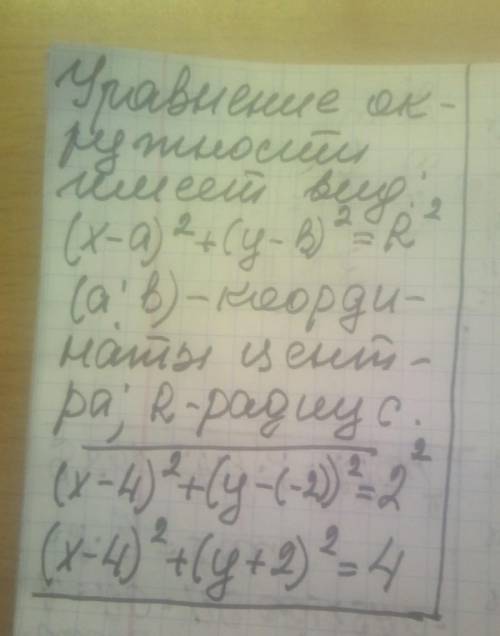 Уравнение ок-
ружности
имеет вид:
(x-a)²+(y-b)²=R²
(a; b)-коорди-
наты цент-
ра; R-радиус.
(x-4)²+(y-(-2))²=2²
(x-4)²+(y+2)²=4